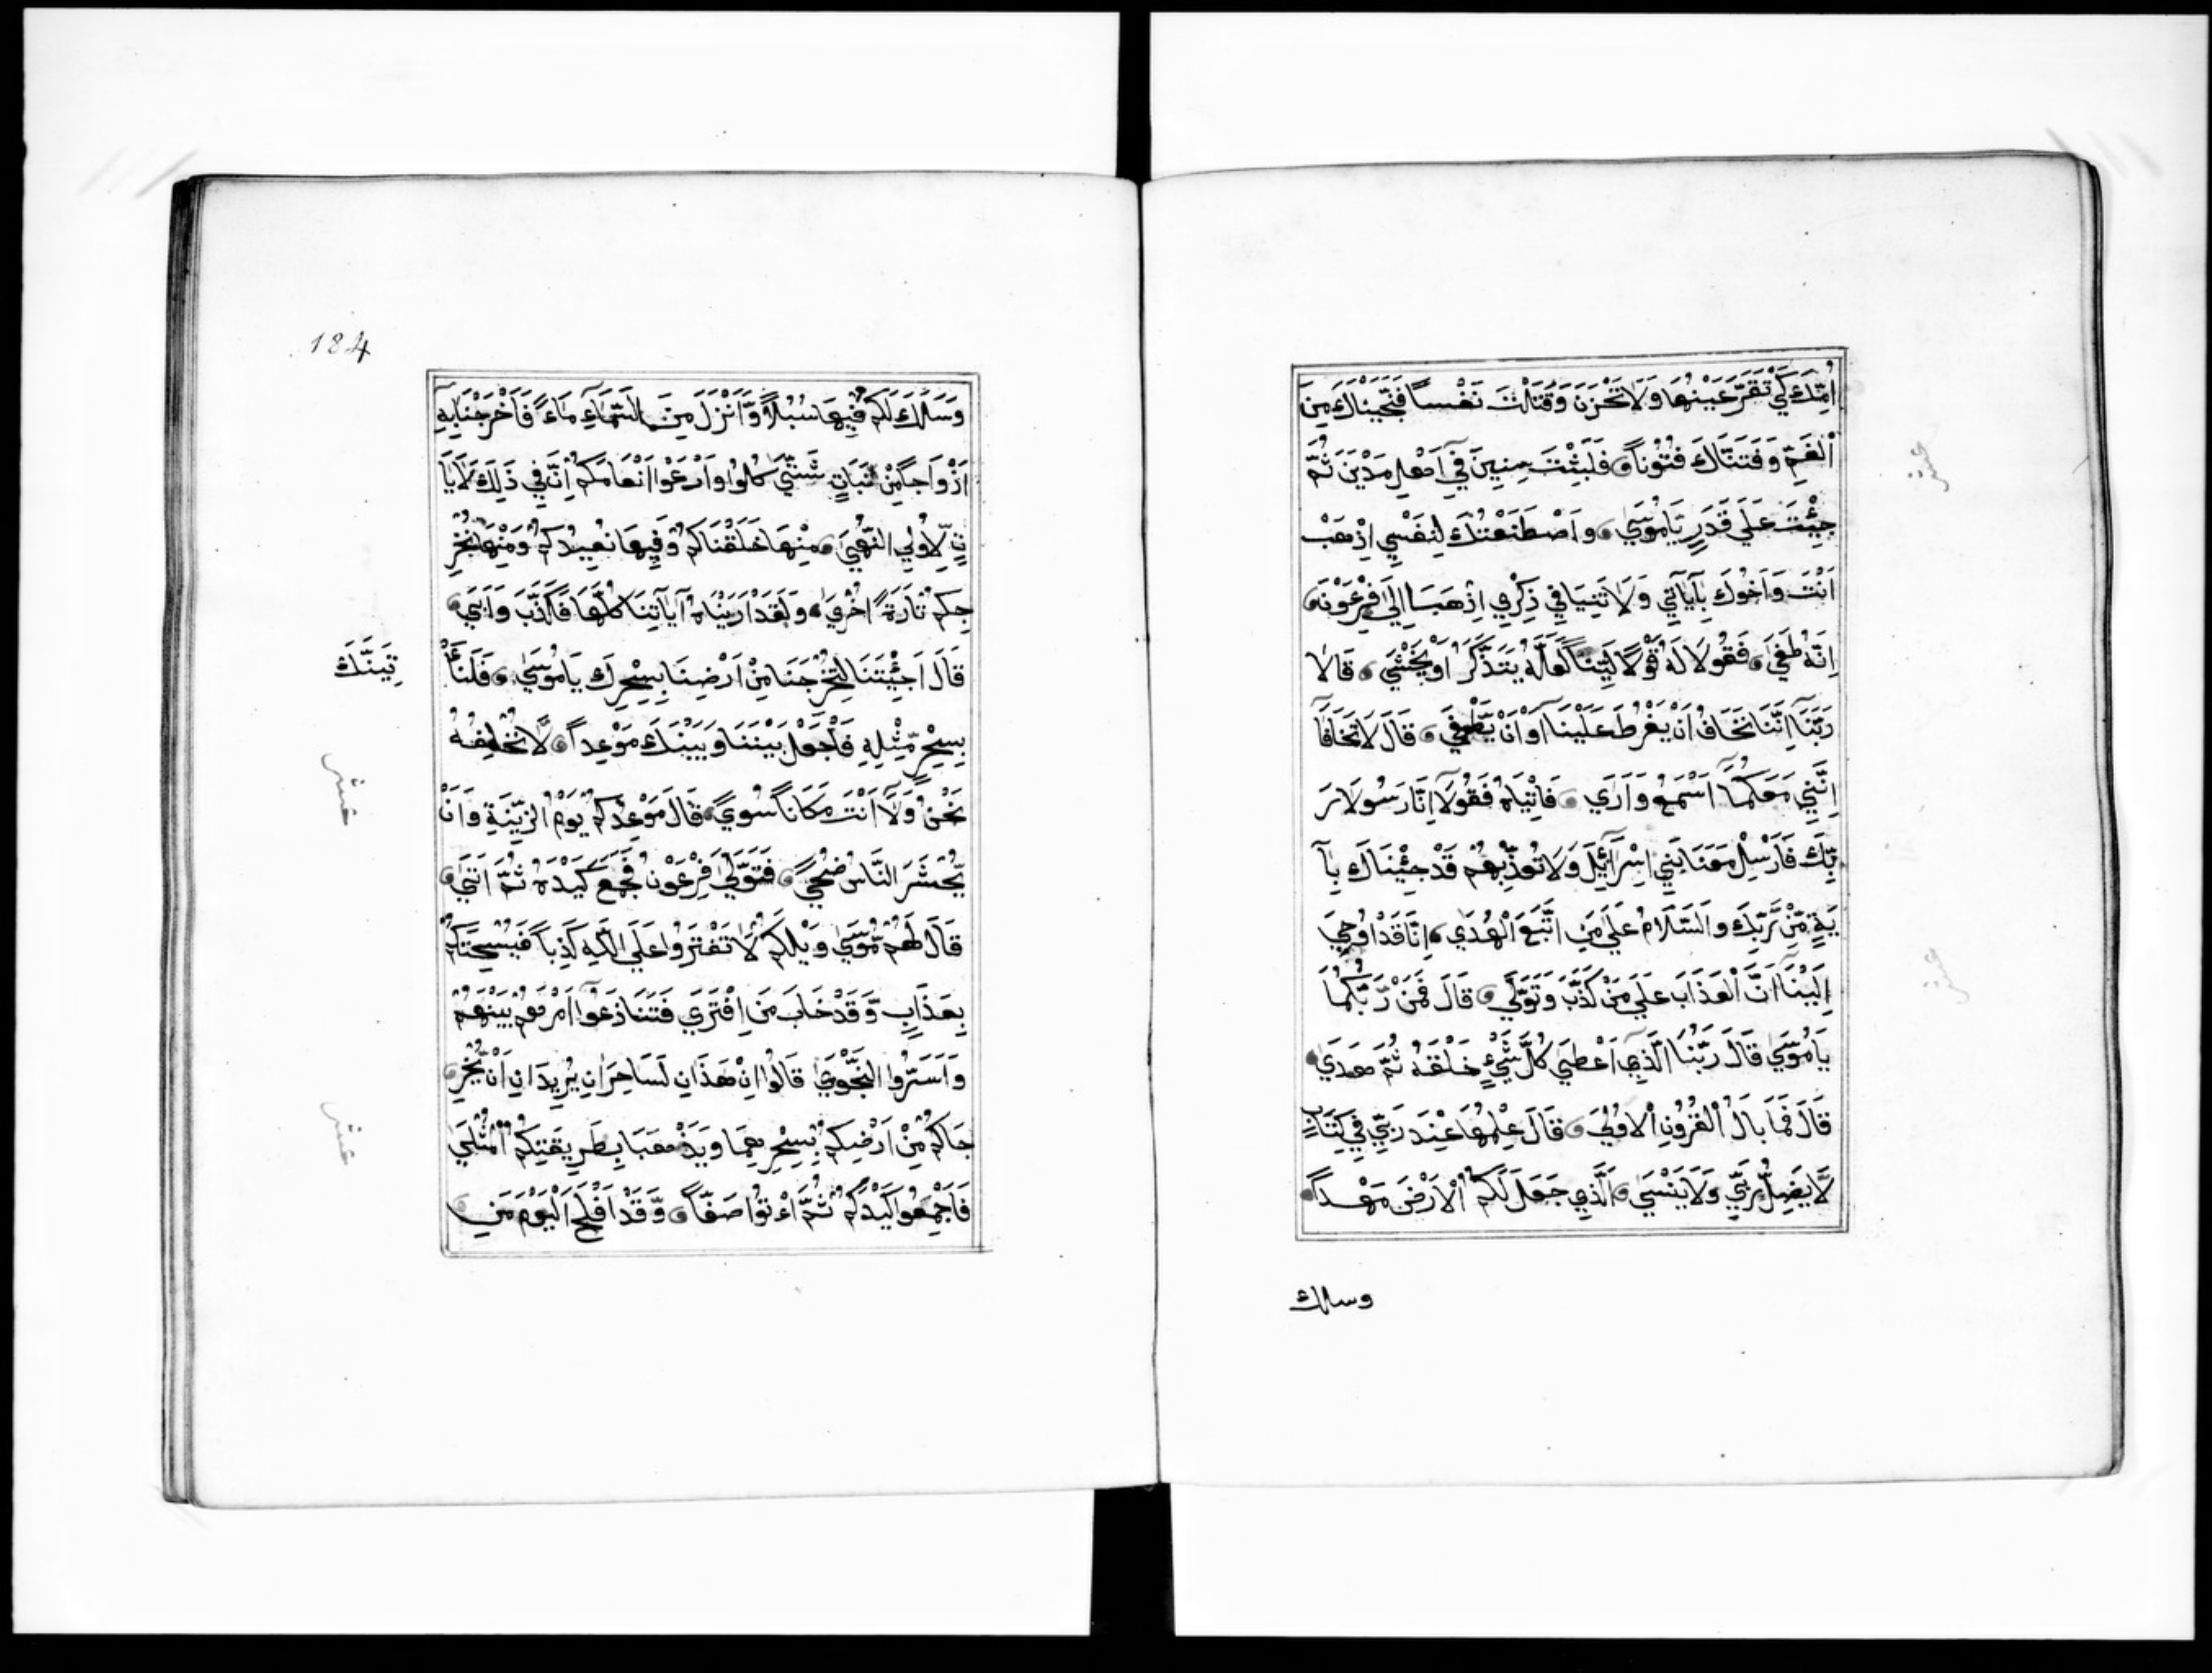 اُمِّكَ كَيْ تَقَرَّ عَيْنُهَا وَلَا تَحْزَنَ وَقَتَلْتَ نَفْساً فَنَجَّيْنَاكَ مِنَ
الْغَمِّ وَفَتَنَّاكَ فُتُوْناً فَلَبِثْتَ سِنِينَ فِي اَهْلِ مَدْيَنَ ثُمَّ
جِئْتَ عَلَي قَدَرٍ يَامُوْسَي وَاصْطَنَعْتُكَ لِنَفْسِي اِذْهَبْ
اَنْتَ وَاَخُوْكَ بِآيَاتِي وَلَا تَنِيَا فِي ذِكْرِي اِذْهَبَا اِلَي فِرْعَوْنَ
اِنَّهُ طَغَي فَقُوْلَا لَهُ قَوْلًا لَيِّناً لَعَلَّهُ يَتَذَكَّرُ اَوْ يَخْشَي قَالَا
رَبَّنَآ اِنَّنَا نَخَافُ اَنْ يَفْرُطَ عَلَيْنَآ اَوْ اَنْ يَّطْغَي قَالَ لَا تَخَافَآ
اِنَّنِي مَعَكُمَآ اَسْمَعُ وَاَرَي فَاْتِيَاهُ فَقُوْلَآ اِنَّا رَسُوْلَا رَ
بِّكَ فَاَرْسِلْ مَعَنَا بَنِي اِسْرَآئِيْلَ وَلَا تُعَذِّبْهُمْ قَدْ جِئْنَاكَ بِآ
يَةٍ مِّنْ رَّبِّكَ وَالسَّلَامُ عَلَي مَنِ اتَّبَعَ الْهُدَي اِنَّا قَدْ اُوْحِيَ
اِلَيْنَآ اَنَّ الْعَذَابَ عَلَي مَنْ كَذَّبَ وَتَوَلَّي قَالَ فَمَنْ رَّبُّكُمَا
يَامُوْسَي قَالَ رَبُّنَا الَّذِي اَعْطَي كُلَّ شَيْءٍ خَلْقَهُ ثُمَّ هَدَي
قَالَ فَمَا بَالُ الْقُرُوْنِ الْاُوْلَي قَالَ عِلْمُهَا عِنْدَ رَبِّي فِي كِتَابٍ
لَّا يَضِلُّ رَبِّي وَلَا يَنْسَي الَّذِي جَعَلَ لَكُمُ الْاَرْضَ مَهْداً
وسلك
عشر
عشر
184
وَسَلَكَ لَكُمْ فِيْهَا سُبُلاً وَّاَنْزَلَ مِنَ السَّمَآءِ مَآءً فَاَخْرَجْنَا بِهِ
اَزْوَاجاً مِّنْ نَّبَاتٍ شَتَّي كُلُوْا وَارْعَوْا اَنْعَامَكُمْ اِنَّ فِي ذَلِكَ لَآيَا
تٍ لِّاُولِي النُّهَي مِنْهَا خَلَقْنَاكُمْ وَفِيْهَا نُعِيْدُكُمْ وَمِنْهَا نُخْرِ
جُكُمْ تَارَةً اُخْرَي وَلَقَدْ اَرَيْنَاهُ آيَاتِنَا كُلَّهَا فَكَذَّبَ وَاَبَي
قَالَ اَجِئْتَنَا لِتُخْرِجَنَا مِنْ اَرْضِنَا بِسِحْرِكَ يَامُوْسَي فَلَنَأْ
تِيَنَّكَ
بِسِحْرٍ مِّثْلِهِ فَاجْعَلْ بَيْنَنَا وَبَيْنَكَ مَوْعِداً لَّا نُخْلِفُهُ
نَحْنُ وَلَآ اَنْتَ مَكَاناً سُوًي قَالَ مَوْعِدُكُمْ يَوْمُ الزِّيْنَةِ وَاَنْ
يُّحْشَرَ النَّاسُ ضُحًي فَتَوَلَّي فِرْعَوْنُ فَجَمَعَ كَيْدَهُ ثُمَّ اَتَي
قَالَ لَهُمْ مُّوْسَي وَيْلَكُمْ لَا تَفْتَرُوْا عَلَي اللّٰهِ كَذِباً فَيُسْحِتَكُمْ
بِعَذَابٍ وَّقَدْ خَابَ مَنِ افْتَرَي فَتَنَازَعُوْآ اَمْرَهُمْ بَيْنَهُمْ
وَاَسَرُّوا النَّجْوَي قَالُوْا اِنْ هَذَانِ لَسَاحِرَانِ يُرِيْدَانِ اَنْ يُّخْرِ
جَاكُمْ مِّنْ اَرْضِكُمْ بِسِحْرِهِمَا وَيَذْهَبَا بِطَرِيْقَتِكُمُ الْمُثْلَي
فَاَجْمِعُوْا كَيْدَكُمْ ثُمَّ ائْتُوْا صَفّاً وَّقَدْ اَفْلَحَ الْيَوْمَ مَنِ
عشر
عشر